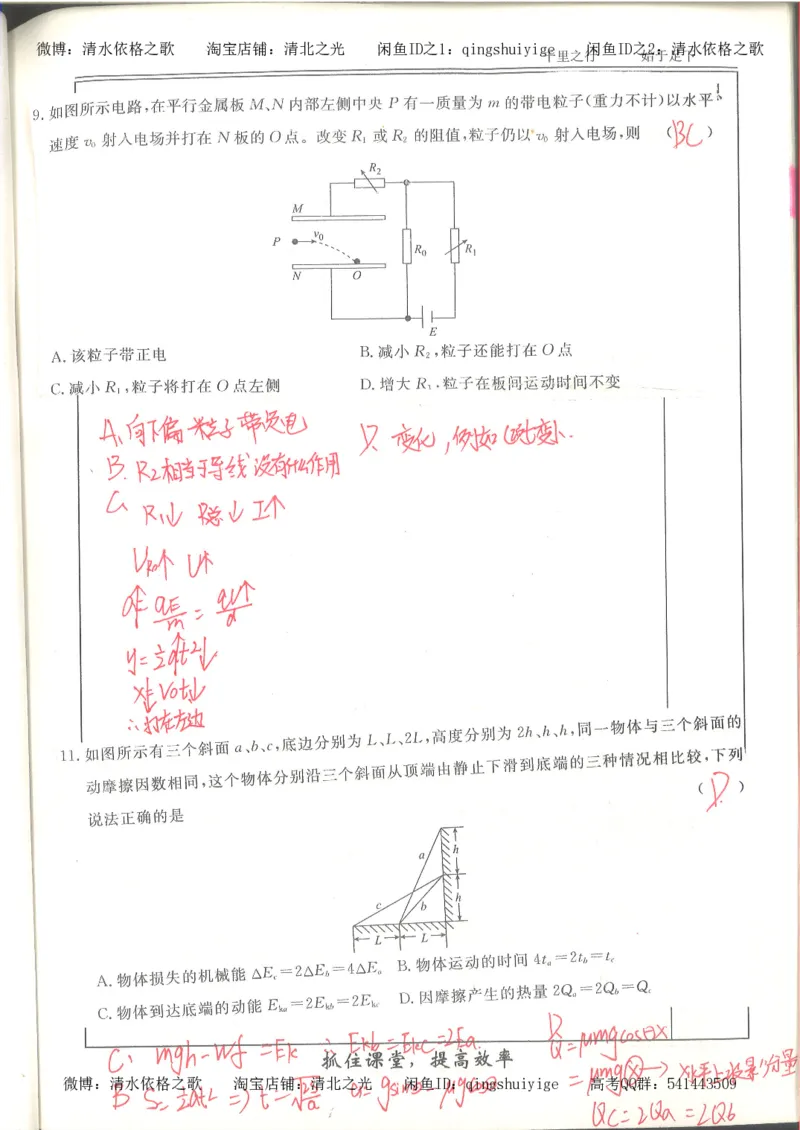 微博：清水依格之歌 淘宝店铺：清北之光 闲鱼ID之1：qingshuiyige 闲鱼ID之2：清水依格之歌
千里之行 始于足下
9. 如图所示电路,在平行金属板 M、N 内部左侧中央 P 有一质量为 m 的带电粒子(重力不计)以水平
速度 v₀ 射入电场并打在 N 板的 O 点。改变 R₁ 或 R₂ 的阻值,粒子仍以 v₀ 射入电场,则 ( BC )
R₂
M
P v₀
R₀ R₁
N O
E
A. 该粒子带正电 B. 减小 R₂,粒子还能打在 O 点
C. 减小 R₁,粒子将打在 O 点左侧 D. 增大 R₁,粒子在板间运动时间不变
A. 向下偏 粒子带负电
D. 变化,例如
B. R₂相当于导线 没有什么作用
C R₁↓ R总↓ I↑
U_{R0}↑ U↑
a↑= qE/m = qU↑/d
y=½at²↓
x↓=v₀t↓
∴打在左边
11. 如图所示有三个斜面 a、b、c,底边分别为 L、L、2L,高度分别为 2h、h、h,同一物体与三个斜面的
动摩擦因数相同,这个物体分别沿三个斜面从顶端由静止下滑到底端的三种情况相比较,下列
说法正确的是 ( D )
a h
c b h
L L
A. 物体损失的机械能 ΔE_c=2ΔE_b=4ΔE_a B. 物体运动的时间 4t_a=2t_b=t_c
C. 物体到达底端的动能 E_{ka}=2E_{kb}=2E_{kc} D. 因摩擦产生的热量 2Q_a=2Q_b=Q_c
C: mgh-Wf=Ek
抓住课堂，提高效率
D Q=μmgcosθx
微博：清水依格之歌 淘宝店铺：清北之光 闲鱼ID：qingshuiyige 高考QQ群：541443509
Qc=2Qa=2Qb